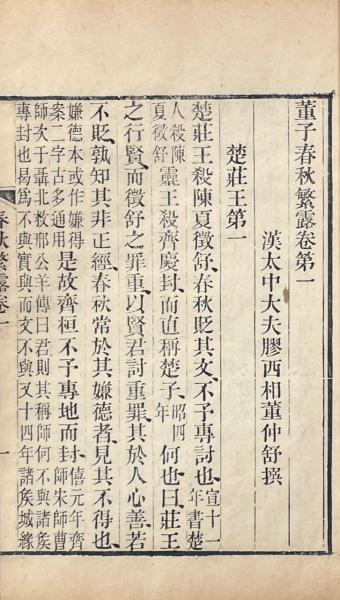 董子春秋繁露卷第一
漢太中大夫膠西相董仲舒撰
楚莊王第一
楚莊王殺陳夏徵舒、春秋貶其文、不予專討也、宣十一年書楚
人殺陳夏徵舒靈王殺齊慶封而直稱楚子、昭四年何也曰莊王
之行賢、而徵舒之罪重、以賢君討重罪、其於人心善、若
不貶、孰知其非正經、春秋常於其嫌德者、見其不得也、
嫌德本或作嫌得案二字古多通用是故齊桓不予專地而封、僖元年齊師宋師曹
師次于聶北救邢公羊傳曰君則其稱師何不與諸侯專封也曷爲不與實與而文不與又十四年諸侯城緣
春秋繁露卷一
一